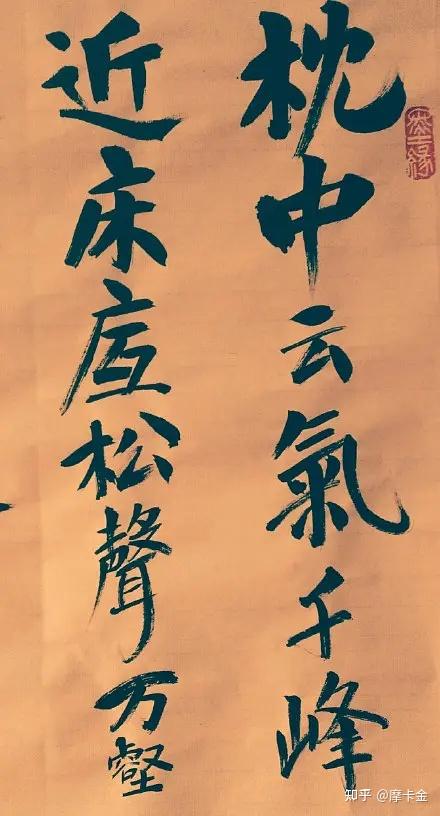 枕中云氣千峰
近床底松聲万壑
知乎 @摩卡金